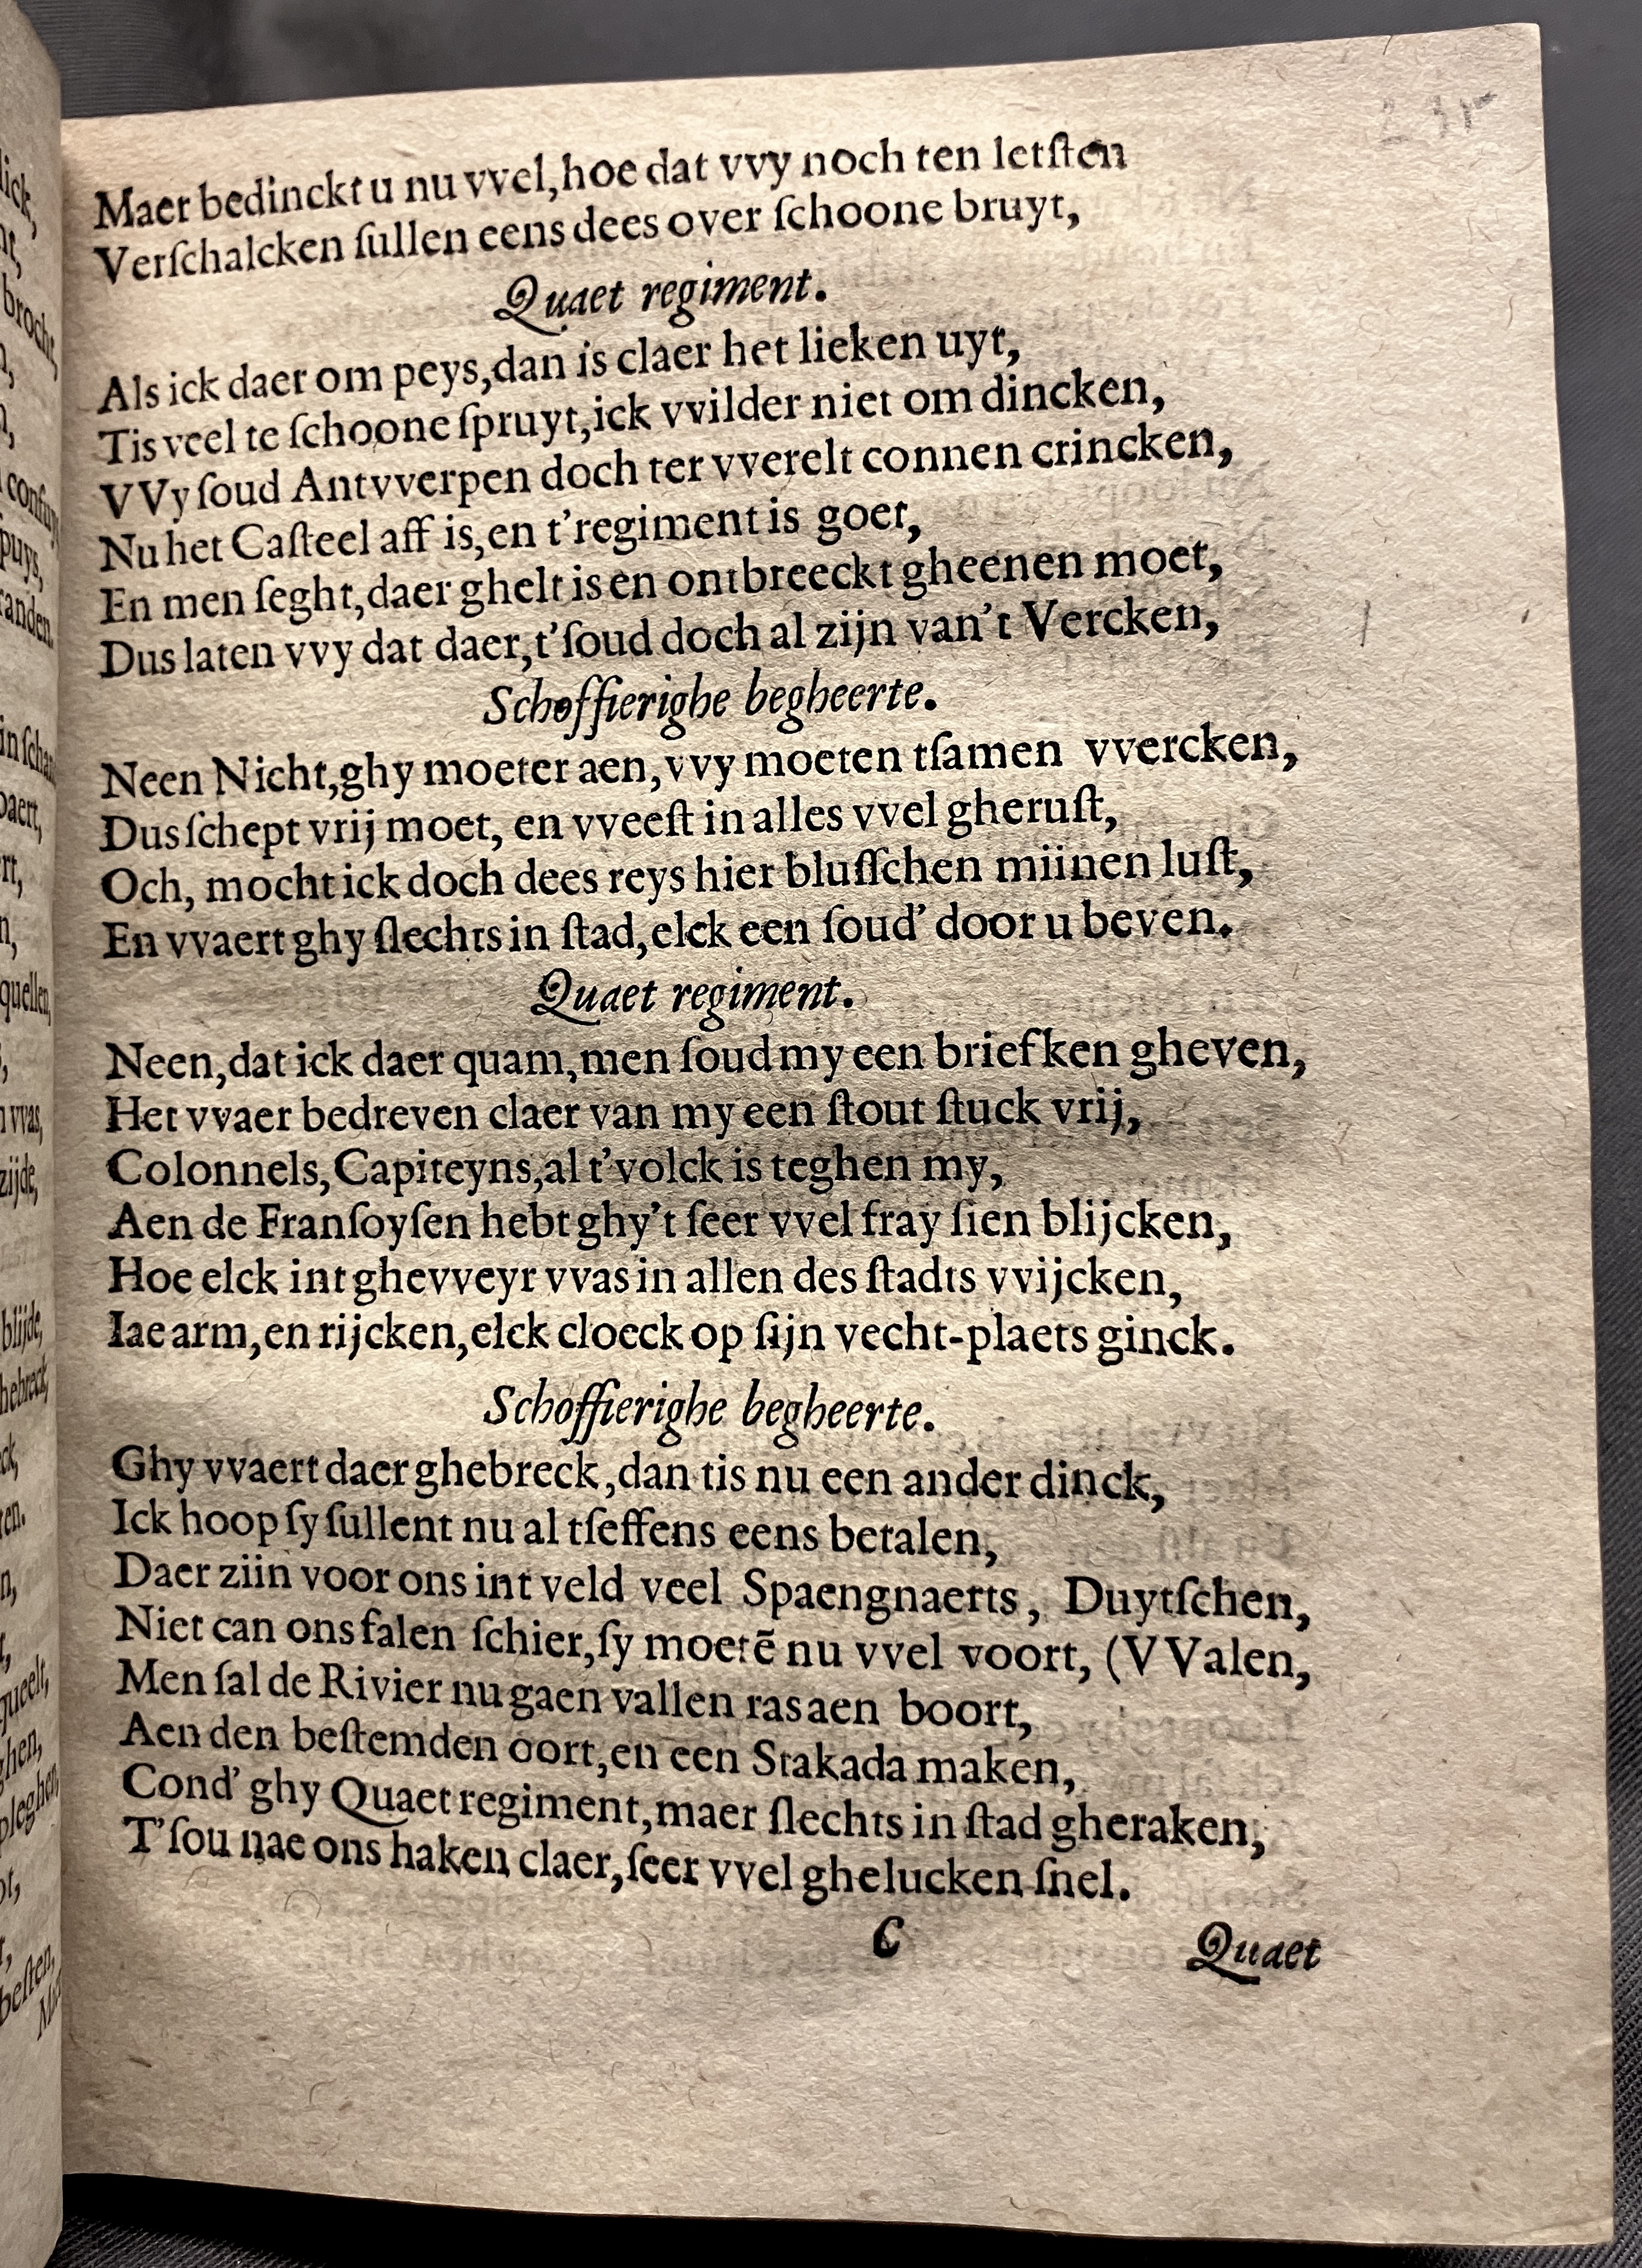 Maer bedinckt u nu vvel, hoe dat vvy noch ten letſten
Verſchalcken ſullen eens dees over ſchoone bruyt,
Quaet regiment.
Als ick daer om peys, dan is claer het lieken uyt,
Tis veel te ſchoone ſpruyt, ick vvilder niet om dincken,
VVy ſoud Antvverpen doch ter vverelt connen crincken,
Nu het Caſteel aff is, en t'regiment is goet,
En men ſeght, daer ghelt is en ontbreeckt gheenen moet,
Dus laten vvy dat daer, t'ſoud doch al zijn van't Vercken,
Schoffierighe begheerte.
Neen Nicht, ghy moeter aen, vvy moeten tſamen vvercken,
Dus ſchept vrij moet, en vveeſt in alles vvel gheruſt,
Och, mocht ick doch dees reys hier bluſſchen miinen luſt,
En vvaert ghy ſlechts in ſtad, elck een ſoud' door u beven.
Quaet regiment.
Neen, dat ick daer quam, men ſoud my een briefken gheven,
Het vvaer bedreven claer van my een ſtout ſtuck vrij,
Colonnels, Capiteyns, al t'volck is teghen my,
Aen de Franſoyſen hebt ghy't ſeer vvel fray ſien blijcken,
Hoe elck int ghevveyr vvas in allen des ſtadts vvijcken,
Iae arm, en rijcken, elck cloeck op ſijn vecht-plaets ginck.
Schoffierighe begheerte.
Ghy vvaert daer ghebreck, dan tis nu een ander dinck,
Ick hoop ſy ſullent nu al tſeffens eens betalen,
Daer ziin voor ons int veld veel Spaengnaerts, Duytſchen,
Niet can ons falen ſchier, ſy moetē nu vvel voort, (VValen,
Men ſal de Rivier nu gaen vallen ras aen boort,
Aen den beſtemden oort, en een Stakada maken,
Cond' ghy Quaet regiment, maer ſlechts in ſtad gheraken,
T'ſou nae ons haken claer, ſeer vvel ghelucken ſnel.
C Quaet